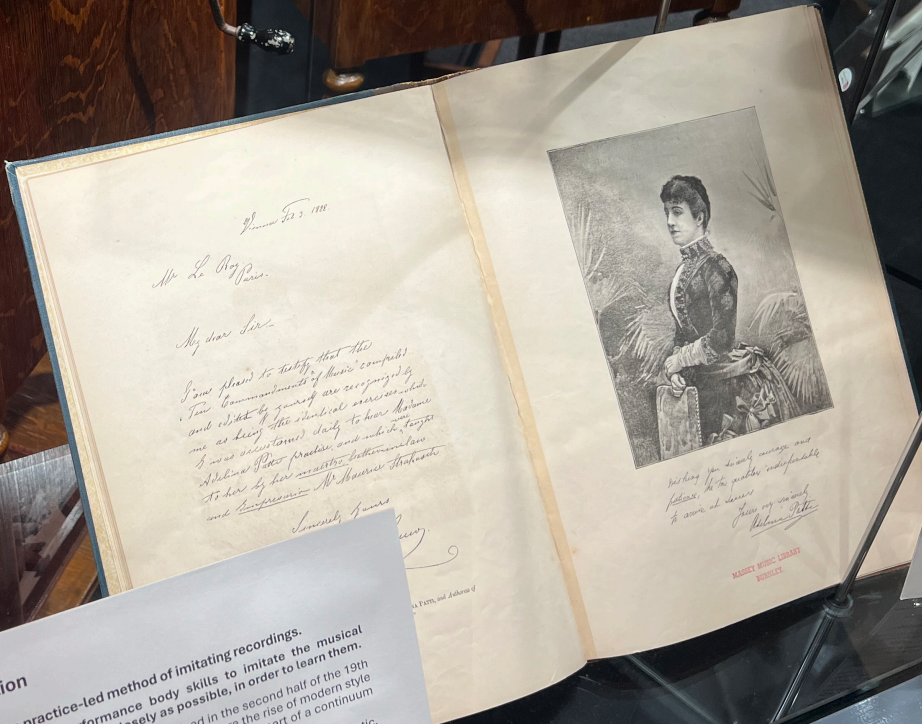 Vienna Feb 3. 1888
Mr Le Roy
Paris.
My dear Sir.
I am pleased to testify that the
"Ten Commandments of Music" compiled
and edited by yourself are recognized by
me as being the identical exercises which
I was accustomed daily to hear Madame
Adelina Patti practise, and which were taught
to her by her maestro, brotherinlaw
and Impresario Mr Maurice Strakosch
Sincerely Yours
Patti, and Authoress of
Wishing you success and
patience, the qualities indispensable
to arrive at
Yours very sincerely
Adelina Patti
MASSEY MUSIC LIBRARY
BURNLEY.
practice-led method of imitating recordings.
body skills to imitate the musical
as possible, in order to learn them.
in the second half of the 19th
the rise of modern style
of a continuum